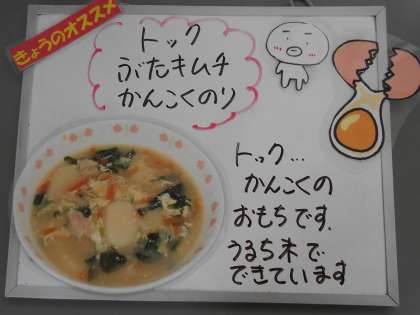 きょうのオススメ
トック
ぶたキムチ
かんこくのり
トック…
かんこくの
おもちです、
うるち米で
できています